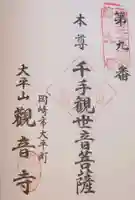 第九番
本尊千手觀世音菩薩
岡崎市大平町
大平山觀音寺